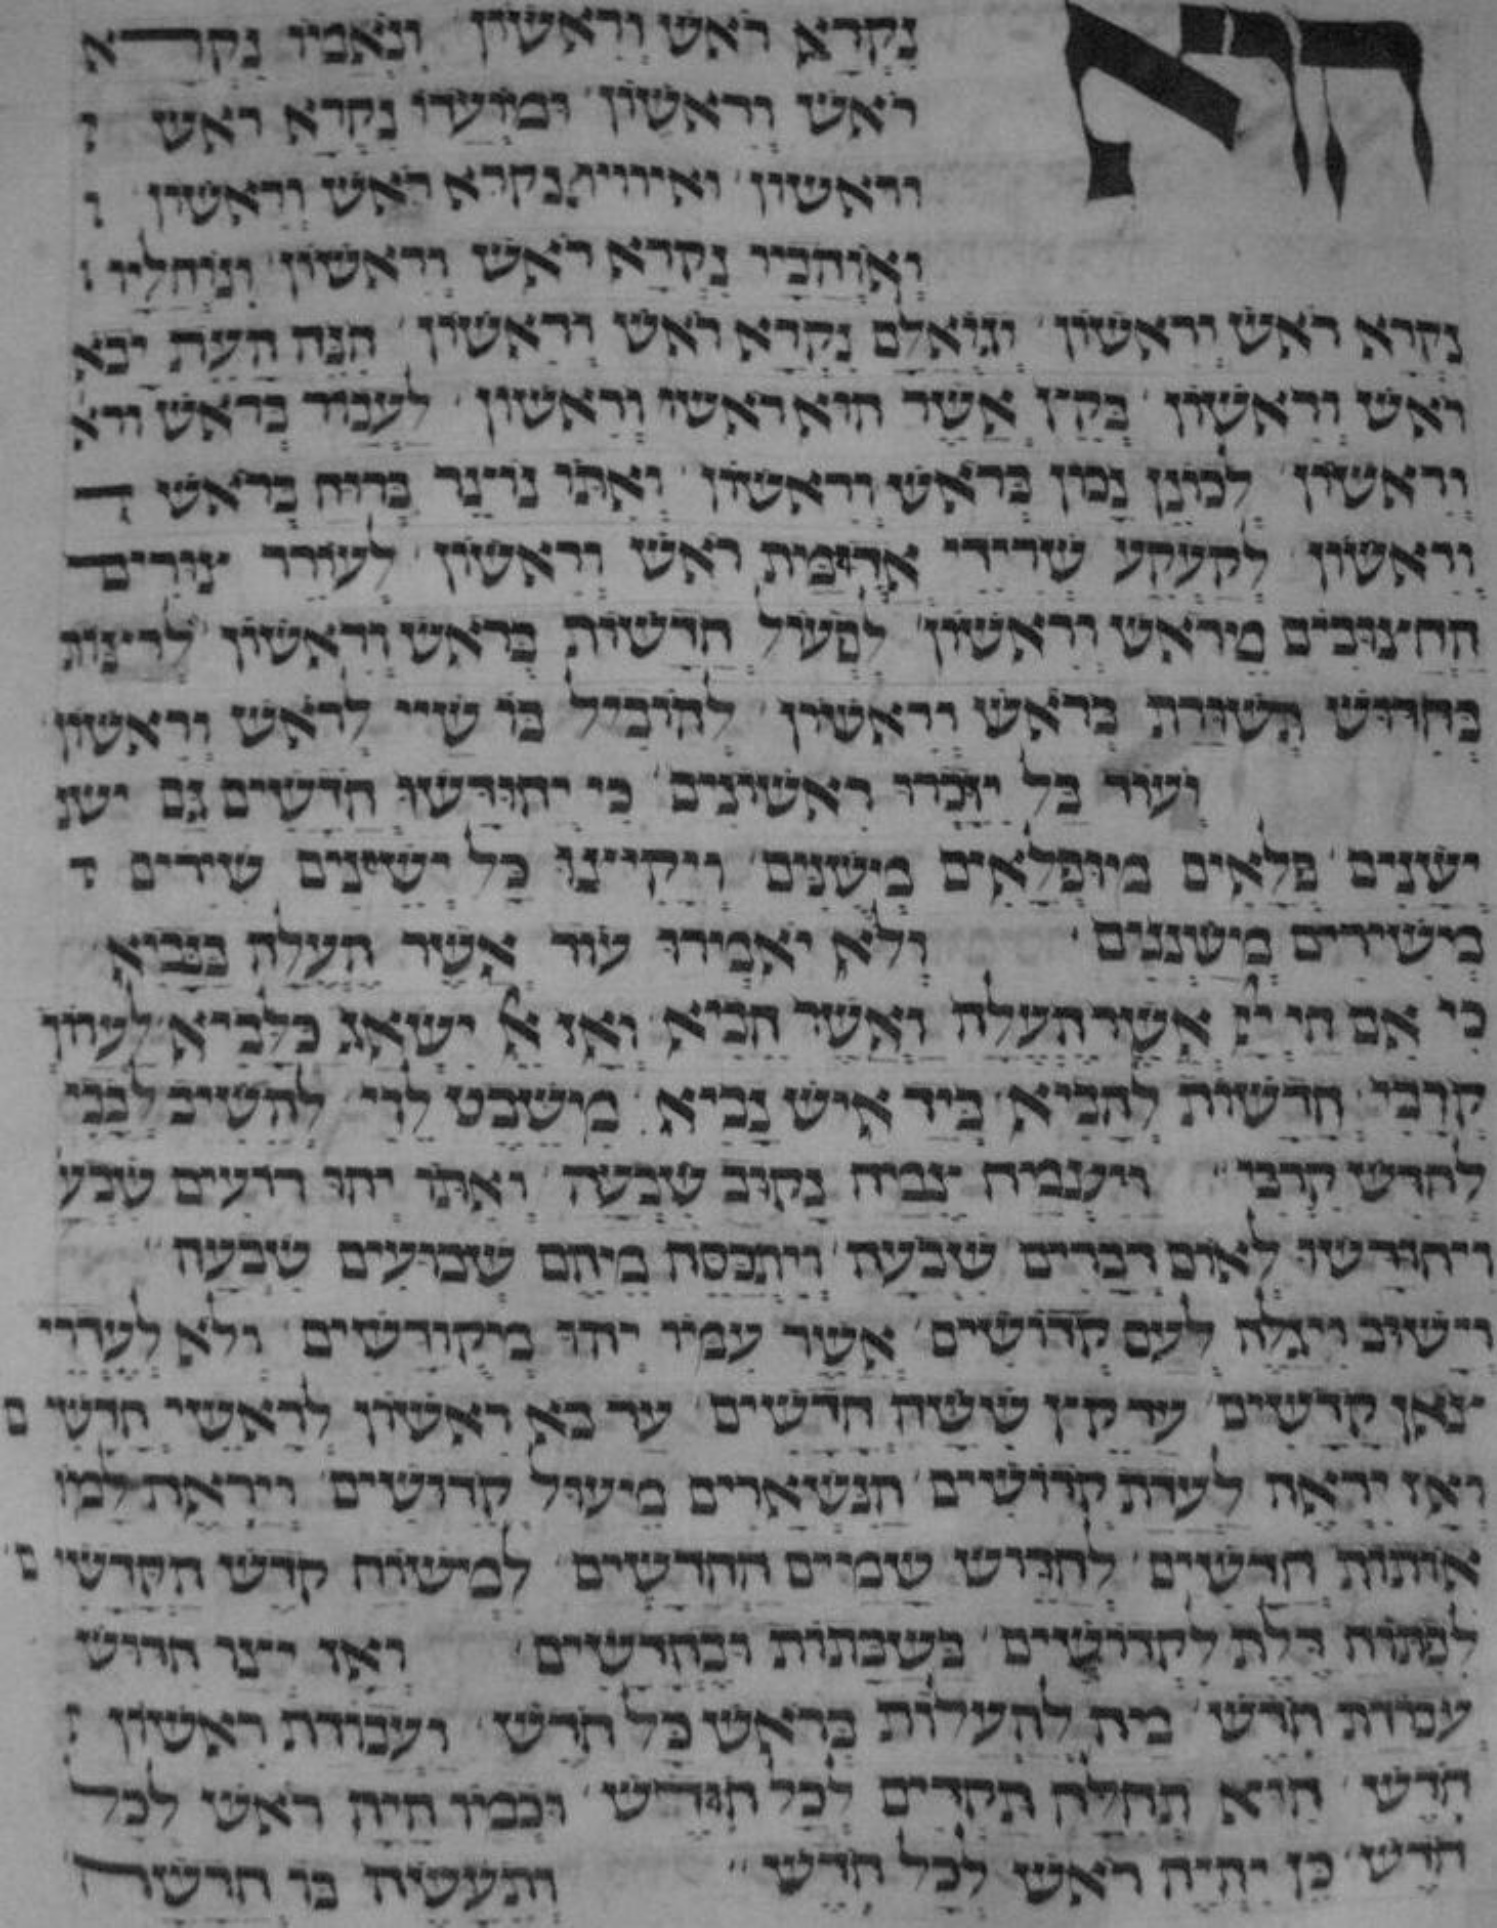 הוא נקרא ראש וראשון ונאמיו נקרא
ראש וראשון ומועדו נקרא ראש ו
וראשון ואיוויו נקרא ראש וראשון ו
ואוהביו נקרא ראש וראשון ונוחליו ו
נקרא ראש וראשון וגואלם נקרא ראש וראשון הנה העת יבא
ראש וראשון בקץ אשר הוא ראש וראשון לעבוד בראש ורא
וראשון למנן נמון בראש וראשון ואתו נוינר ברוח בראש ו
וראשון לקעקע שרידי אדומית ראש וראשון לעורר צורים
החצובים מראש וראשון לפעול חדשות בראש וראשון לרינות
בחדוש השורת בראש וראשון להוביל בו שיי לראש וראשון
ועוד בל יזכרו ראשונים כי יחודשו חדשים גם ישנ
ישנים פלאים מופלאים משנים ויקיצו כל ישינים שירים ו
משירים משוננים ולא יאמרו עוד אשר העלה בנביא
כי אם חי יי אשר העלה ואשר הביא ואז אל ישאג כלביא לערוך
קרבי חדשות להביא ביד איש נביא משבט לוי להשיב לבבי
לחדש קרבי ויצמיח צמיח נקוב שבעה ואתו יהו רועים שבע
ויחודשו לאום דברים שבעה ויתכסה מיהם שבועים שבעה
וישוב ויגלה לעם קדושים אשר עמיו יהו מקודשים ולא לעדרי
צאן קדשים עד קץ ששה חדשים עד בא ראשון לראשי חדשי ם
ואז יראה לעדת קדושים הנשארים מיעול קדושים ויראת למו
אותות חדשים לחדוש שמיים החדשים למשוח קדש הקדשי ם
לפתוח דלת לקדושים בשבתות ובחדשים ואז יצו חדוש
עמדת חדש מה להעלות בראש כל חדש ועבודת ראשון ו
חדש הוא תחלה הקדים לכל חודש וכמו היה ראש לכל
חדש כן יהיה ראש לכל חדש ותעשיה בו חדשה